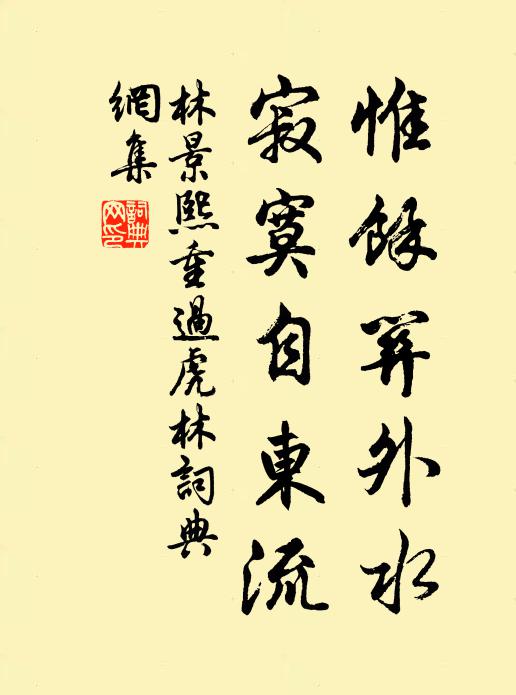 惟餘關外水
寂寞自東流
林景熙重過虎林詞典
網集
詞典网印